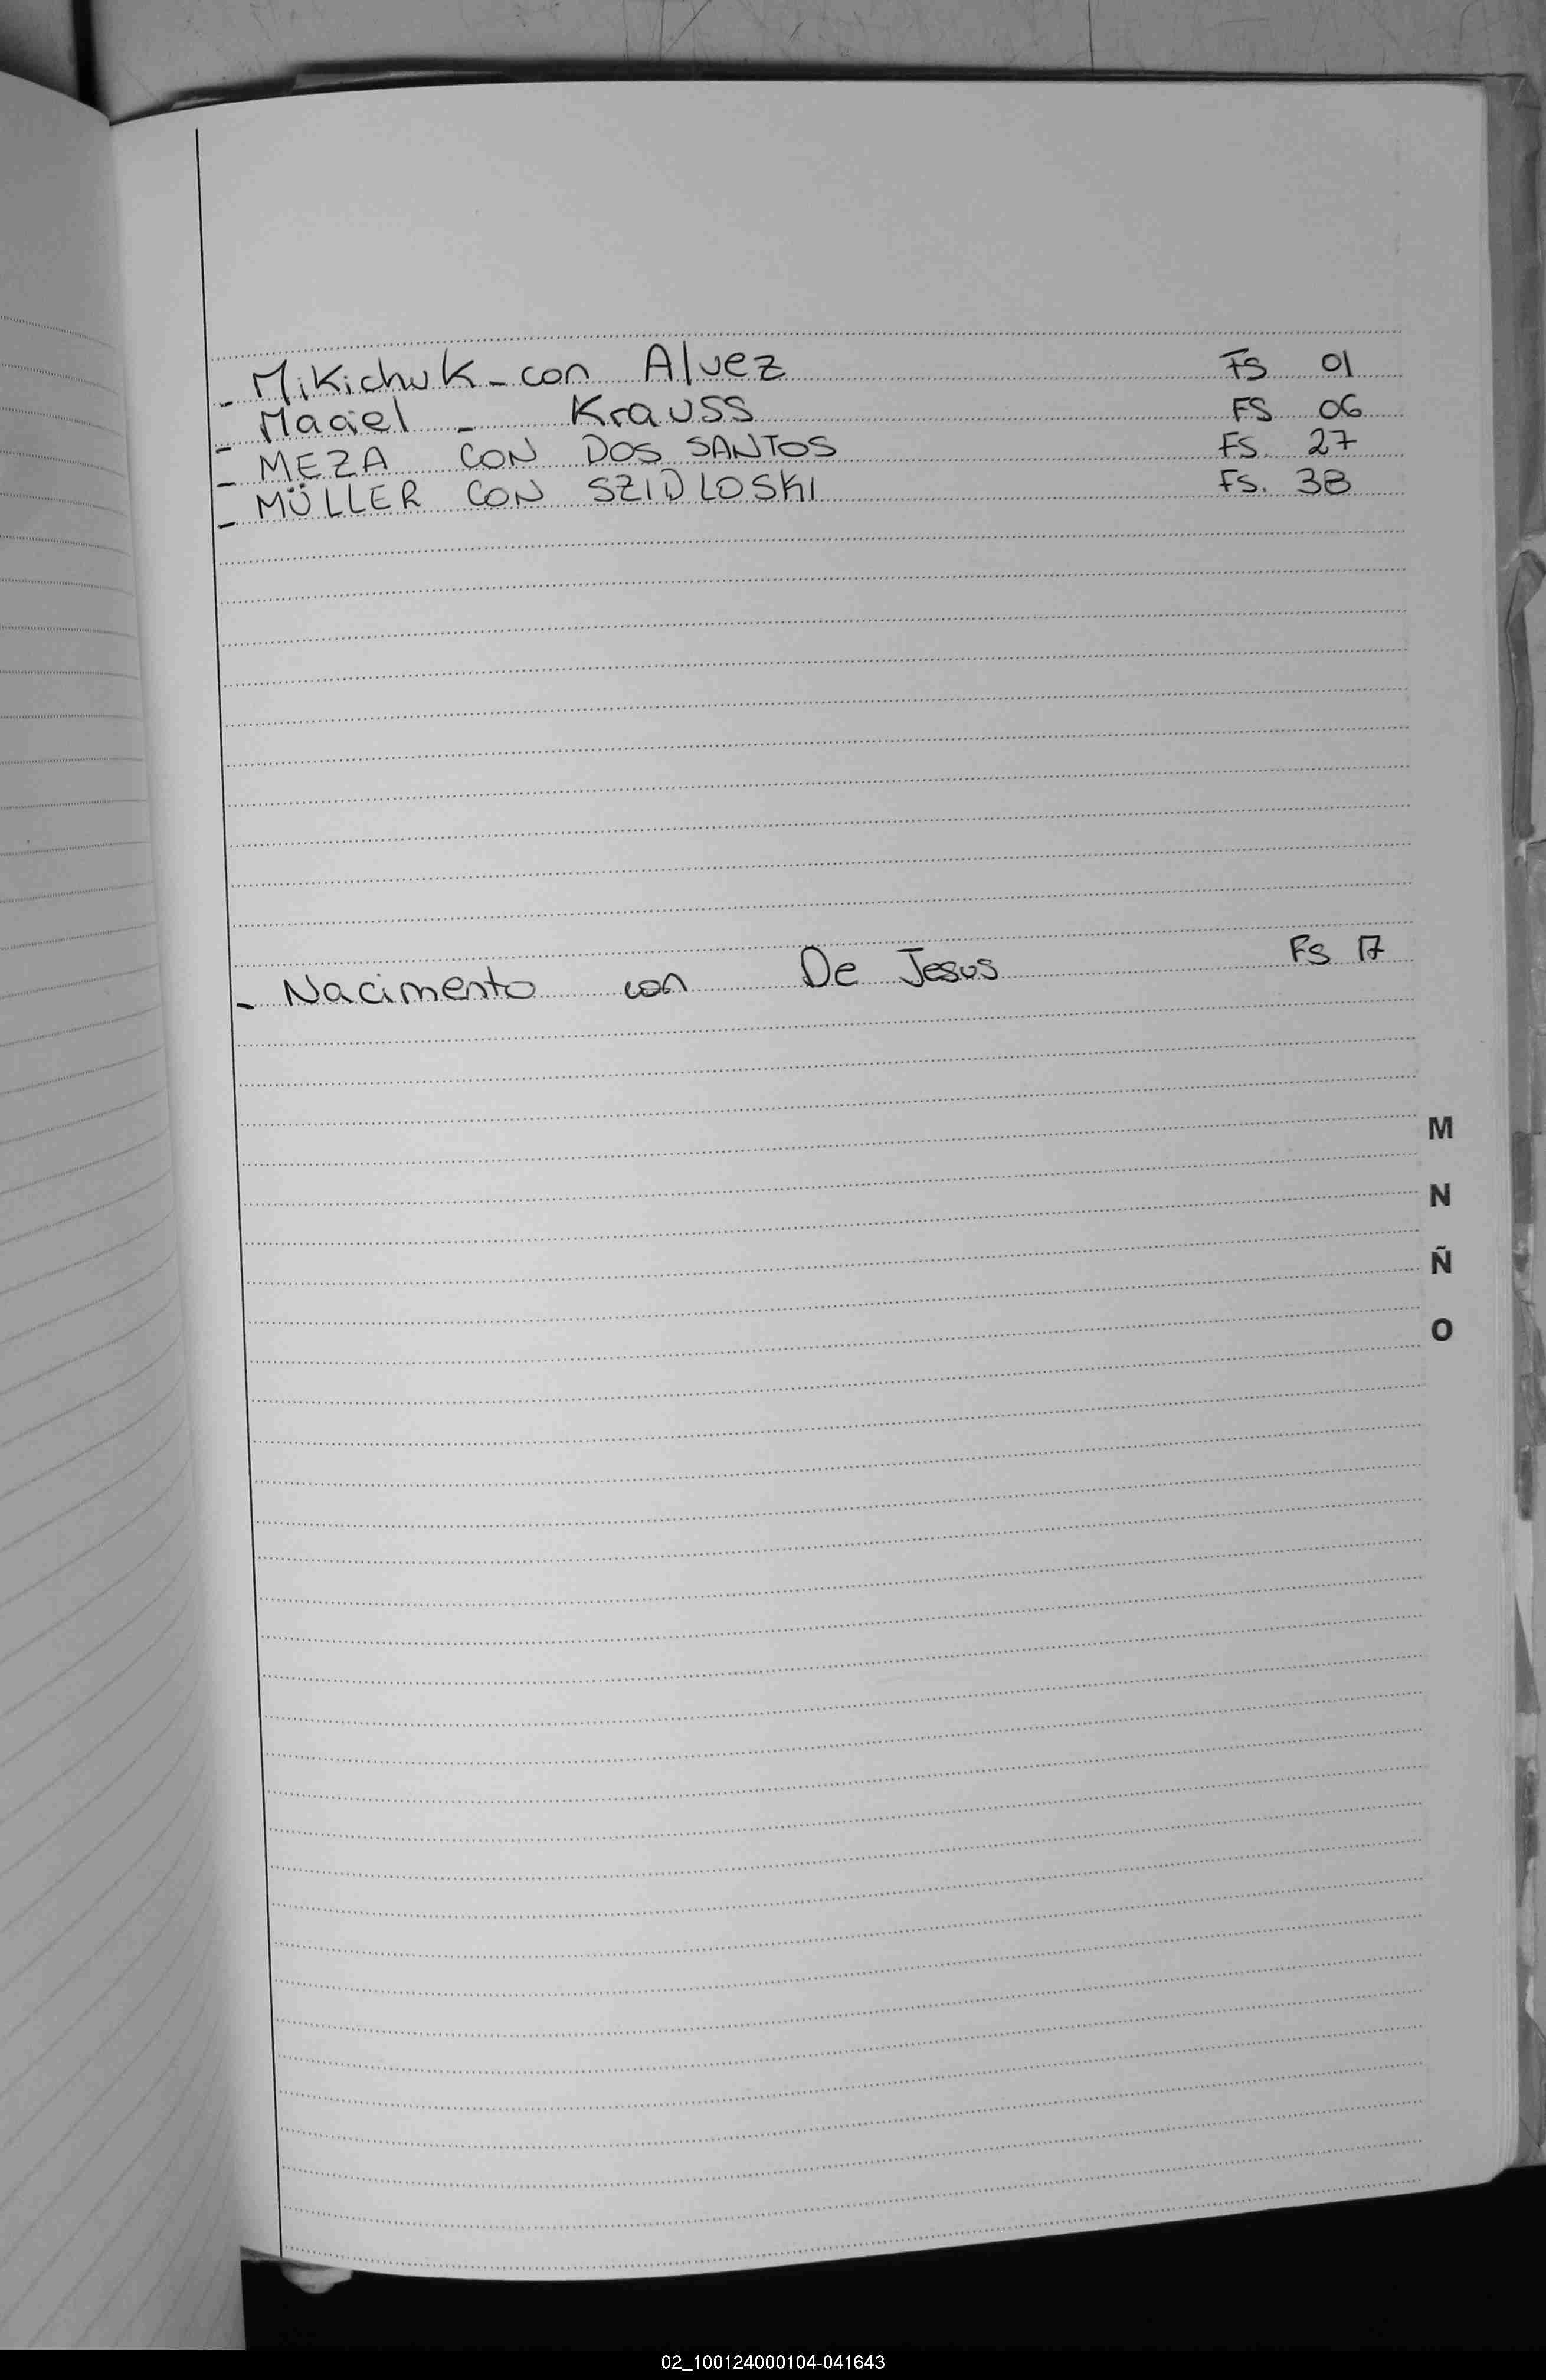 - Mikichuk - con Alvez Fs 01
- Maciel - Krauss FS 06
- MEZA CON DOS SANTOS FS. 27
- MÜLLER CON SZIDLOSKI FS. 38
- Nacimento con De Jesus Fs 17
M
N
Ñ
O
02_100124000104-041643